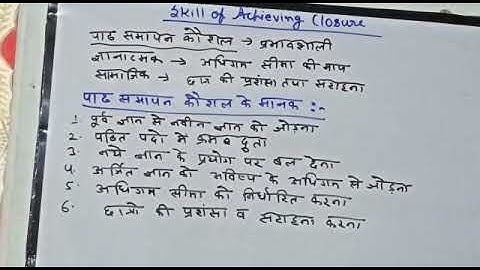 Skill of Achieving Closure
पाठ समापन कौशल → प्रभावशाली
ज्ञानात्मक → अधिगम सीमा की माप
सामाजिक → छात्र की प्रशंसा तथा सराहना
पाठ समापन कौशल के मानक :-
1. पूर्व ज्ञान से नवीन ज्ञान को जोड़ना
2. पठित पदो में क्रमबद्धता
3. नये ज्ञान के प्रयोग पर बल देना
4. अर्जित ज्ञान को भविष्य के अधिगम से जोड़ना
5. अधिगम सीमा को निर्धारित करना
6. छात्रो की प्रशंसा व सराहना करना